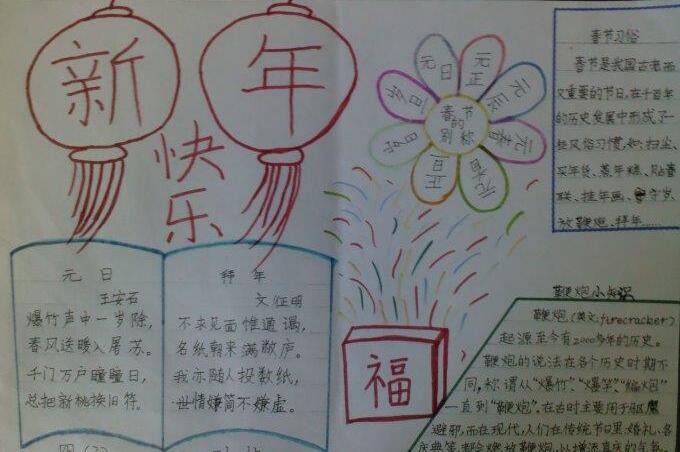 新年
快乐
春节的别称
元日
元正
元辰
元春
元朔
正旦
岁旦
年旦
春节习俗
春节是我国古老而
又重要的节日,在千百年
的历史发展中形成了一
些风俗习惯,如:扫尘、
买年货、蒸年糕、贴春
联、挂年画、守岁、
放鞭炮、拜年……
元日
王安石
爆竹声中一岁除,
春风送暖入屠苏。
千门万户瞳瞳日,
总把新桃换旧符。
拜年
文征明
不求见面惟通谒,
名纸朝来满敝庐。
我亦随人投数纸,
世情嫌简不嫌虚。
福
鞭炮小知识
鞭炮,(英文,firecracker)
起源至今有2000多年的历史。
鞭炮的说法在各个历史时期不
同,称谓从“爆竹”、“爆竿”、“编炮”
一直到“鞭炮”。在古时主要用于驱魔
避邪,而在现代,人们在传统节日里、婚礼、各